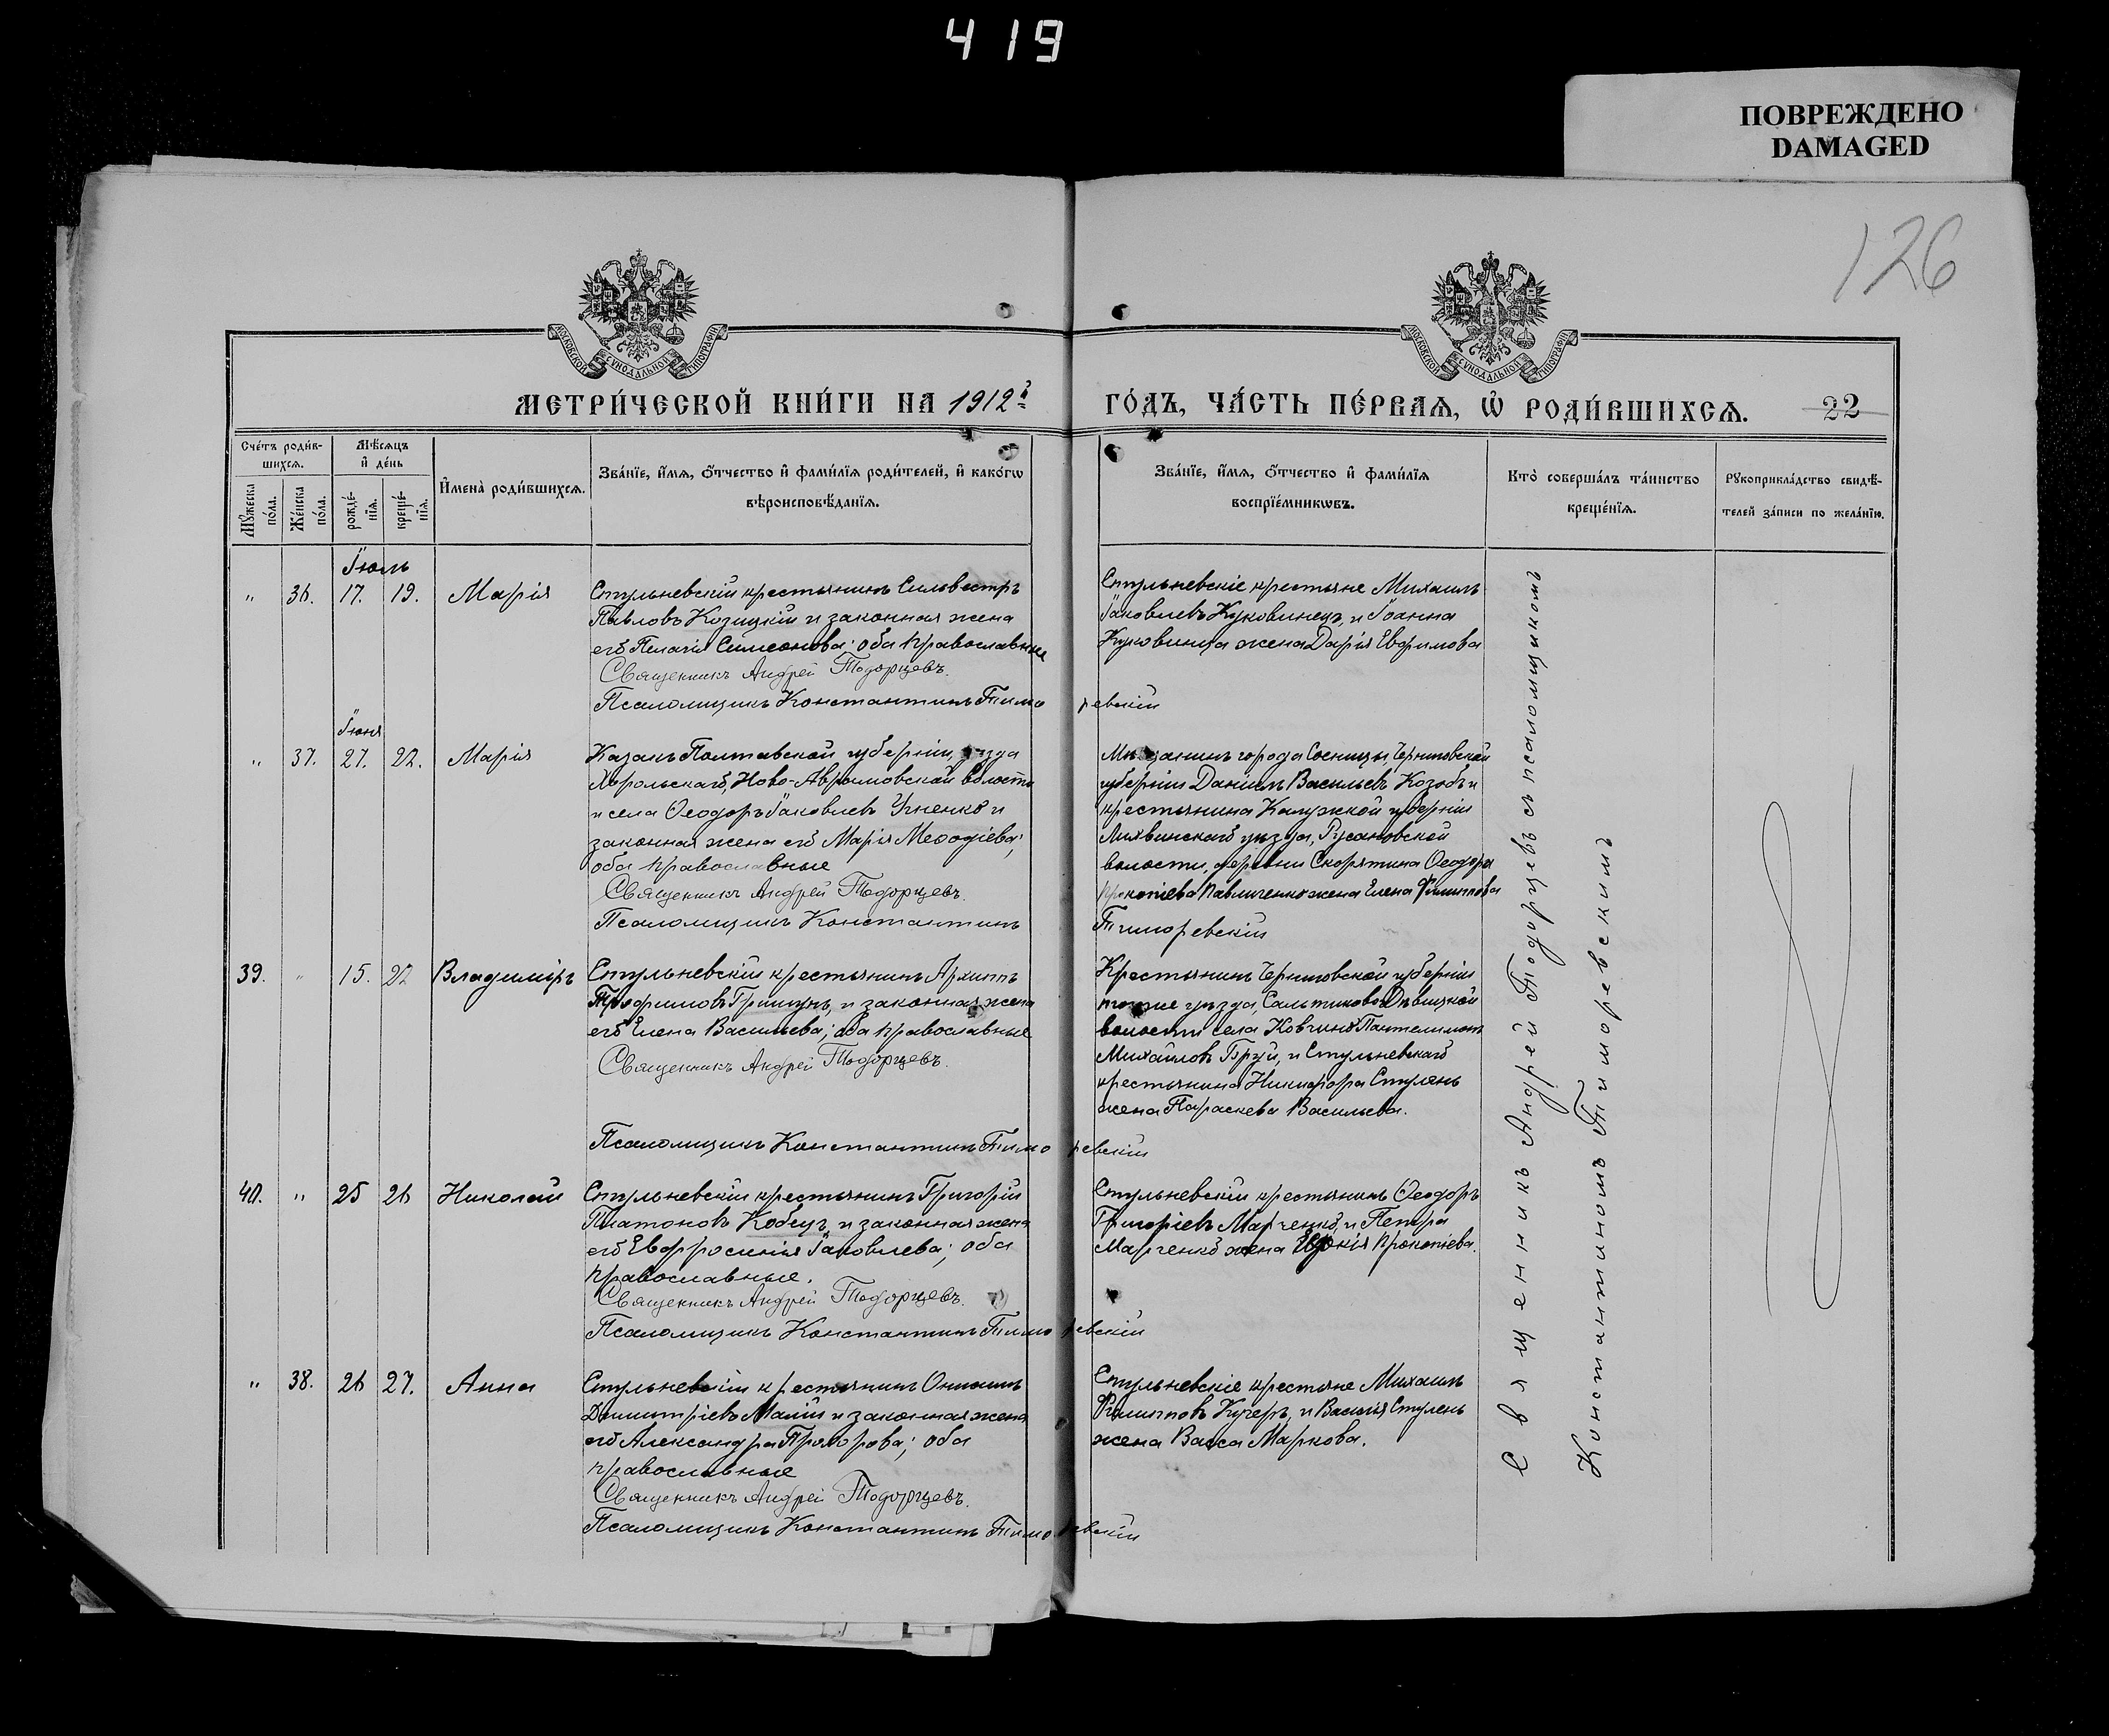 419
ПОВРЕЖДЕНО
DAMAGED
126
МОСКОВСКОЙ СѴНОДАЛЬНОЙ ТИПОГРАФІИ
МОСКОВСКОЙ СѴНОДАЛЬНОЙ ТИПОГРАФІИ
МЕТРИ́ЧЕСКОЙ КНИ́ГИ НА 1912й ГО́ДЪ, ЧА́СТЬ ПЕ́РВАѦ, Ѽ РОДИ́ВШИХСѦ. 22
Сче́тъ роди́в-
шихсѧ.
Мѣ́сѧцъ
и҆ де́нь
Мꙋ́жеска
по́ла.
Же́нска
по́ла.
рожде́-
нїѧ.
креще́-
нїѧ.
И҆мена̀ роди́вшихсѧ.
Зва́нїе, и҆́мѧ, ѻ҆́тчество и҆ фами́лїѧ роди́телей, и҆ како́гѡ
вѣроисповѣ́данїѧ.
Зва́нїе, и҆́мѧ, ѻ҆́тчество и҆ фами́лїѧ
воспрїе́мникѡвъ.
Кто̀ соверша́лъ та́инство
креще́нїѧ.
Рꙋкоприкла́дство свидѣ́-
телей за́писи по жела́нїю.
Іюль
" 36. 17. 19. Марія
Стульневскій крестьянинъ Силовестръ
Павловъ Козицкій и законная жена
его Пелагія Симеонова; оба православные
Священникъ Андрей Тодорцевъ.
Псаломщикъ Константинъ Тиморевскій
Стульневскіе крестьяне Михаилъ
Іаковлевъ Куковинецъ, и Іоанна
Куковинца жена Дарія Ефримова
Іюня
" 37. 27. 22. Марія
Казакъ Полтавской губерніи, уѣзда
Хорольскаго, Ново-Аврамовской волости
и села Ѳеодоръ Іаковлевъ Ученко и
законная жена его Марія Меѳодіева;
оба православные
Священникъ Андрей Тодорцевъ.
Псаломщикъ Константинъ Тиморевскій
Мѣщанинъ города Сосницы, Черниговской
губерніи Даніилъ Васильевъ Козобъ и
крестьянина Калужской губерніи
Лихвинскаго уѣзда, Русановской
волости, деревни Скорятина Ѳеодора
Прокопіева Павличенко жена Елена Филиппова
39. " 15. 22 Владиміръ
Стульневскій крестьянинъ Архиппъ
Трофимовъ Грищунъ, и законная жена
его Елена Васильева; оба православные
Священникъ Андрей Тодорцевъ.
Псаломщикъ Константинъ Тиморевскій
Крестьянинъ Черниговской губерніи
тогоже уѣзда, Салтыково Дѣвицкой
волости села Ковчина Пантелимонъ
Михаиловъ Бруй, и Стульневскаго
крестьянина Никифора Стулень
жена Параскева Васильева.
40. " 25 26 Николай
Стульневскій крестьянинъ Григорій
Платоновъ Кобецъ, и законная жена
его Евфросинія Іаковлева; оба
православные.
Священникъ Андрей Тодорцевъ.
Псаломщикъ Константинъ Тиморевскій
Стульневскій крестьянинъ Ѳеодоръ
Григоріевъ Марченко, и Петра
Марченко жена Прокопіева.
" 38. 26 27. Анна
Стульневскій крестьянинъ Онисимъ
Димитріевъ Малій и законная жена
его Александра Прохорова; оба
православные
Священникъ Андрей Тодорцевъ.
Псаломщикъ Константинъ Тиморевскій
Стульневскіе крестьяне Михаилъ
Филипповъ Кучеръ, и Василія Стулень
жена Васса Маркова.
Священникъ Андрей Тодорцевъ съ псаломщикомъ
Константиномъ Тиморевскимъ